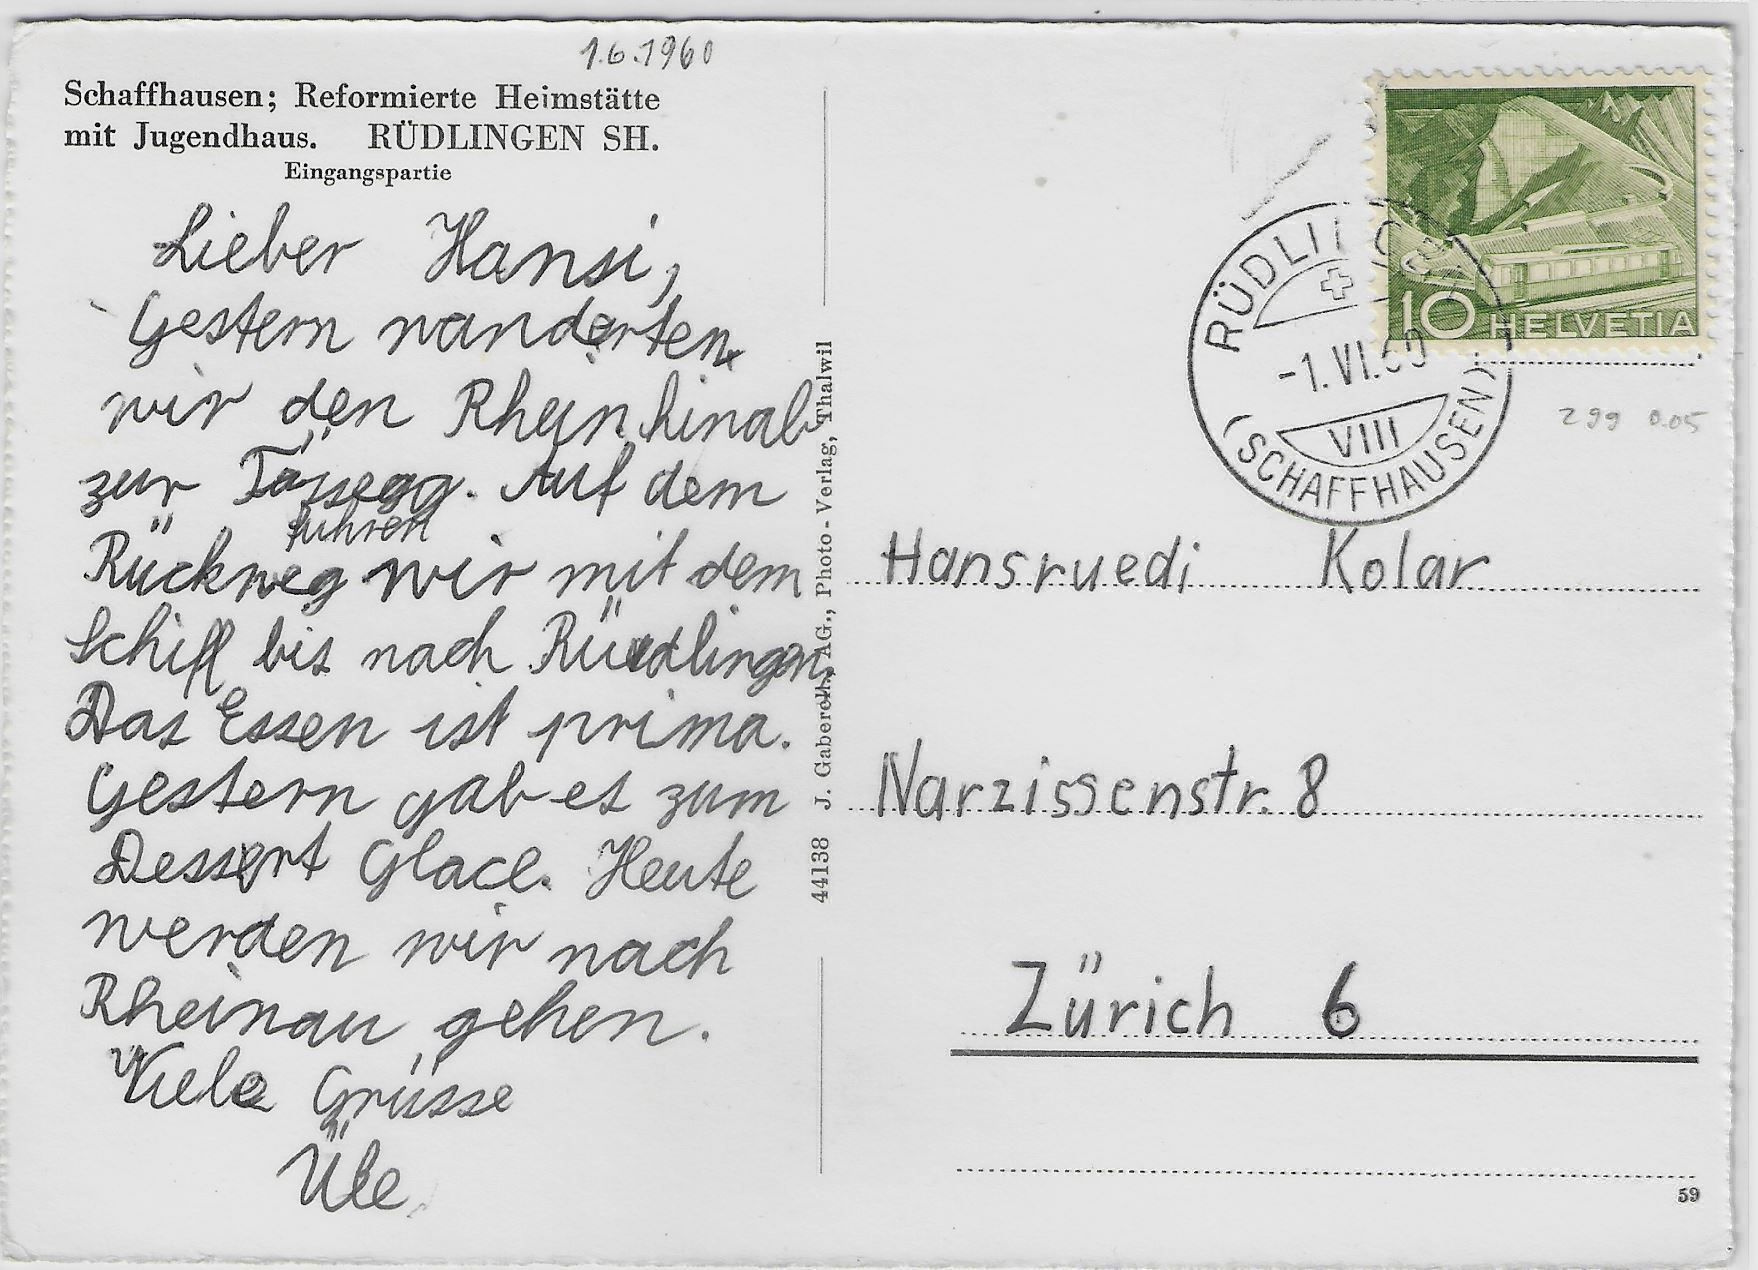 1.6.1960
Schaffhausen; Reformierte Heimstätte
mit Jugendhaus. RÜDLINGEN SH.
Eingangspartie
Lieber Hansi,
Gestern wanderten
wir den Rhein hinab
zur Tössegg. Auf dem
fuhren
Rückweg wir mit dem
Schiff bis nach Rüedlingen.
Das Essen ist prima.
Gestern gab es zum
Dessert Glace. Heute
werden wir nach
Rheinau gehen.
Viele Grüsse
Üle
44138 J. Gaberell AG., Photo-Verlag, Thalwil
10 HELVETIA
RÜDLINGEN
-1.VI.60
VIII
(SCHAFFHAUSEN)
299 0.05
Hansruedi Kolar
Narzissenstr. 8
Zürich 6
59